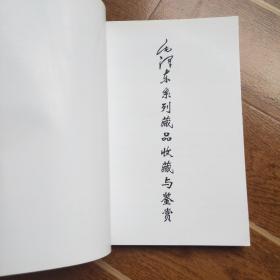 毛泽东系列藏品收藏与鉴赏